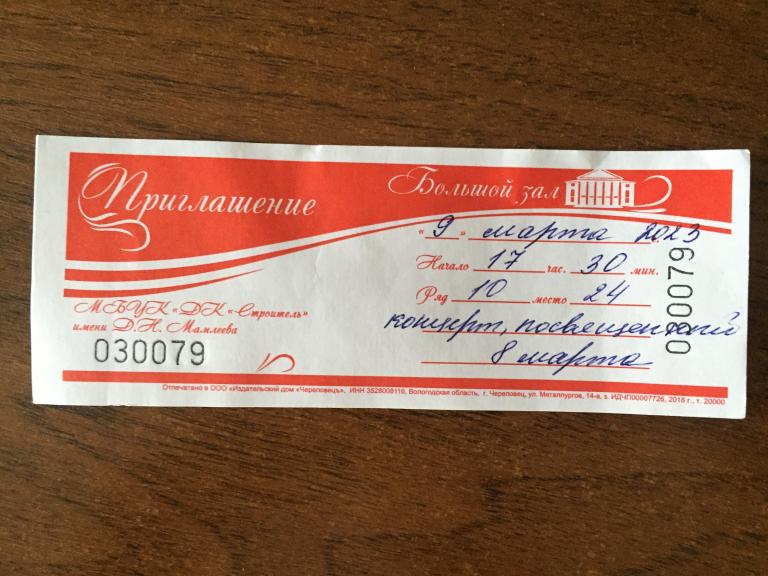 Приглашение
Большой зал
« 9 » марта 2023
Начало 17 час. 30 мин.
Ряд 10 место 24
концерт, посвященный
8 марта
МБУК «ДК «Строитель»
имени Д.Н. Мамлеева
030079
030079
Отпечатано в ООО «Издательский дом «Череповецъ», ИНН 3528008116, Вологодская область, г. Череповец, ул. Металлургов, 14-а, з. ИДЧП00007726, 2018 г., т. 20000